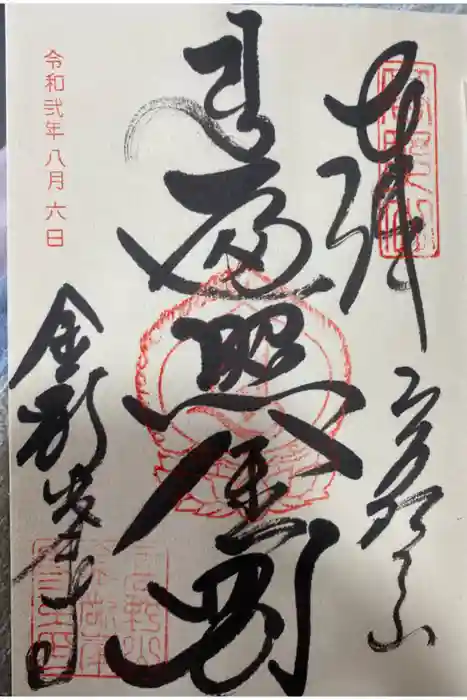 奉拝
高野山
遍照金剛
令和弐年八月六日
金剛峯寺